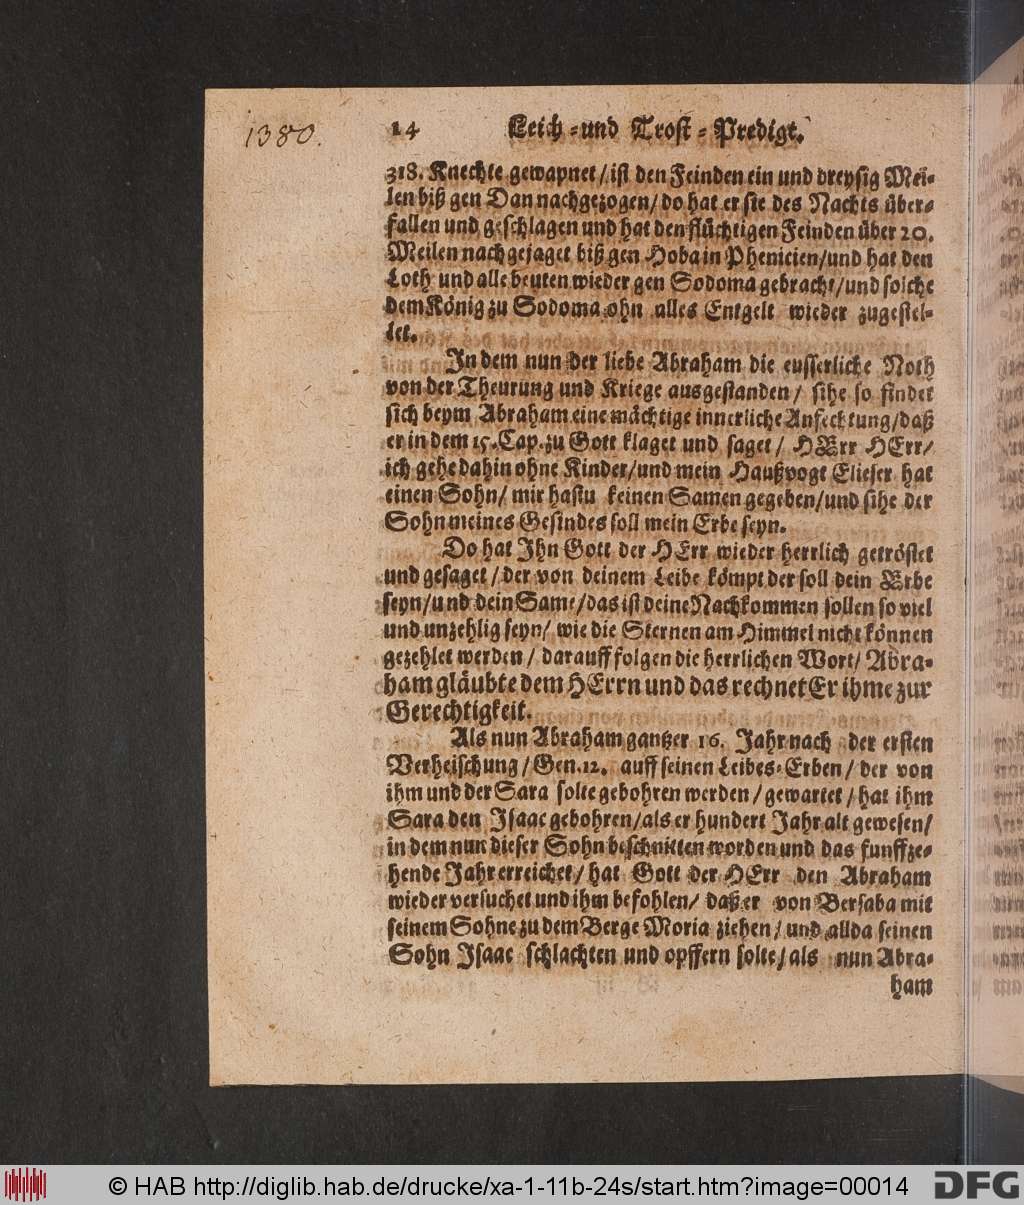 1380.
14 Leich-und Trost-Predigt.
318. Knechte gewapnet/ist den Feinden ein und dreysig Mei-
len biß gen Dan nachgezogen/do hat er sie des Nachts über-
fallen und geschlagen und hat den flüchtigen Feinden über 20.
Meilen nachgejaget biß gen Hoba in Phenicien/und hat den
Loth und alle beuten wieder gen Sodoma gebracht/und solche
dem König zu Sodoma ohn alles Entgelt wieder zugestel-
let.
In dem nun der liebe Abraham die eusserliche Noth
von der Theurung und Kriege ausgestanden/ sihe so findet
sich beym Abraham eine mächtige innerliche Anfechtung/daß
er in dem 15. Cap. zu Gott klaget und saget/ HErr HErr/
ich gehe dahin ohne Kinder/und mein Haußvogt Elieser hat
einen Sohn/ mir hastu keinen Samen gegeben/und sihe der
Sohn meines Gesindes soll mein Erbe seyn.
Do hat Ihn Gott der HErr wieder herrlich getröstet
und gesaget/der von deinem Leibe kömpt der soll dein Erbe
seyn/und dein Same/das ist deine Nachkommen sollen so viel
und unzehlig seyn/ wie die Sternen am Himmel nicht können
gezehlet werden/ darauff folgen die herrlichen Wort/ Abra-
ham gläubte dem HErrn und das rechnet Er ihme zur
Gerechtigkeit.
Als nun Abraham gantzer 16. Jahr nach der ersten
Verheischung/Gen.12. auff seinen Leibes-Erben/der von
ihm und der Sara solte gebohren werden/gewartet/hat ihm
Sara den Isaac gebohren/als er hundert Jahr alt gewesen/
in dem nun dieser Sohn beschnitten worden und das funffze-
hende Jahr erreichet/hat Gott der HErr den Abraham
wieder versuchet und ihm befohlen/ daß er von Bersaba mit
seinem Sohne zu dem Berge Moria ziehen/und allda seinen
Sohn Isaac schlachten und opffern solte/als nun Abra-
ham
© HAB http://diglib.hab.de/drucke/xa-1-11b-24s/start.htm?image=00014
DFG